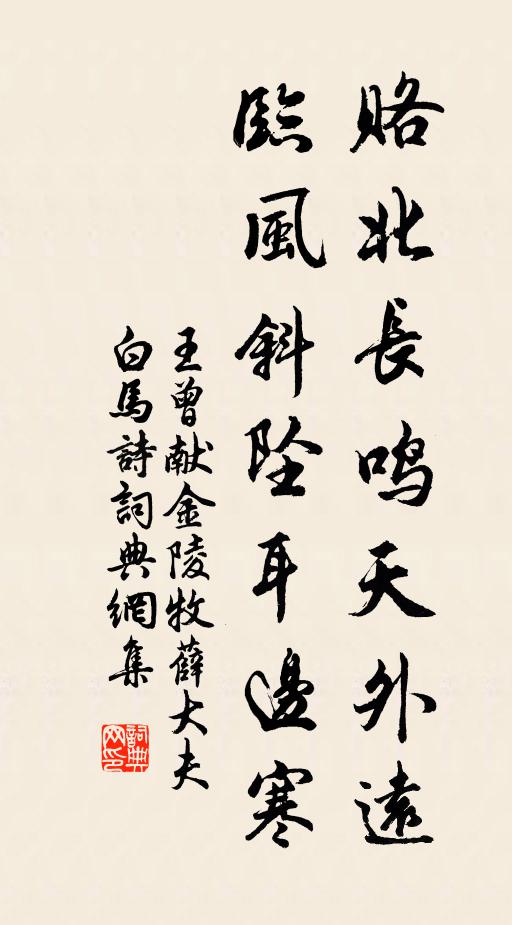 赂北長鸣天外遠
臨風斜坠耳邊寒
王曾献金陵牧薛大夫
白馬詩詞典網集
詞典网印